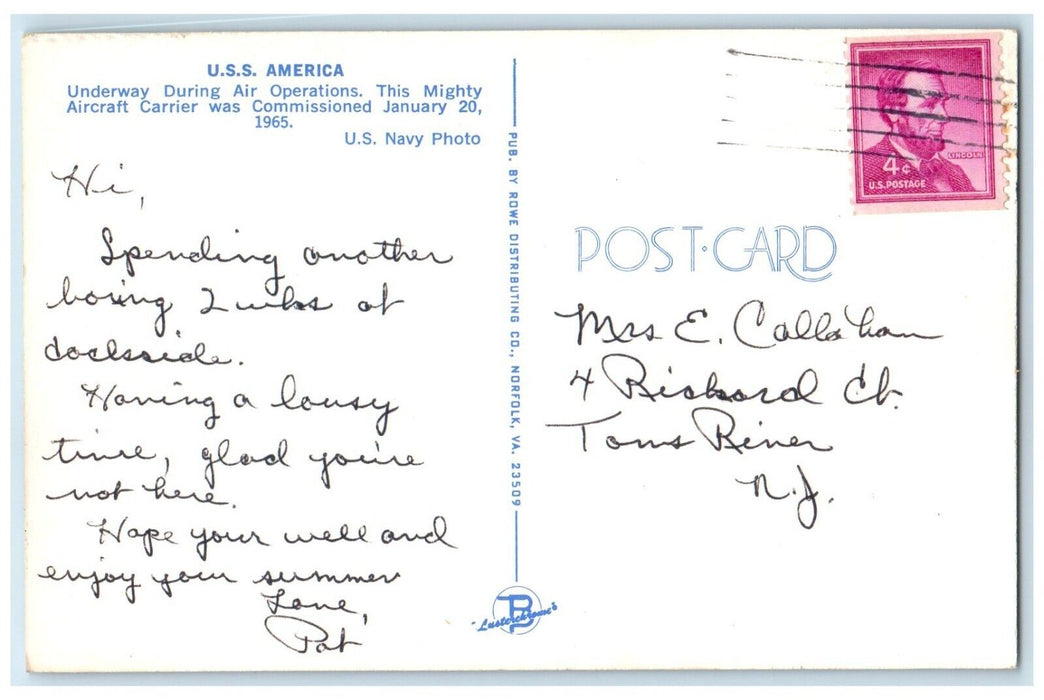 U.S.S. AMERICA
Underway During Air Operations. This Mighty
Aircraft Carrier was Commissioned January 20,
1965.
U.S. Navy Photo
Hi,
Spending another
boring 2 wks at
dockside.
Having a lousy
time, glad you're
not here.
Hope your well and
enjoy your summer
Love,
Pat
PUB. BY ROWE DISTRIBUTING CO., NORFOLK, VA. 23509
"Lusterchrome's
LINCOLN
4¢
U.S. POSTAGE
POST·CARD
Mrs E. Callahan
4 Rickard Ct.
Toms River
N.J.